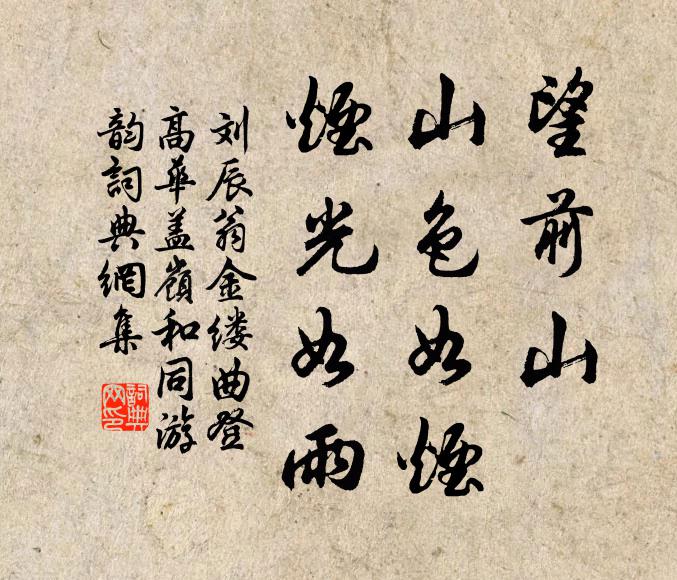 望前山
山色如煙
煙光如雨
刘辰翁金缕曲登
高華盖嶺和同游
韵詞典網集
詞典
网印